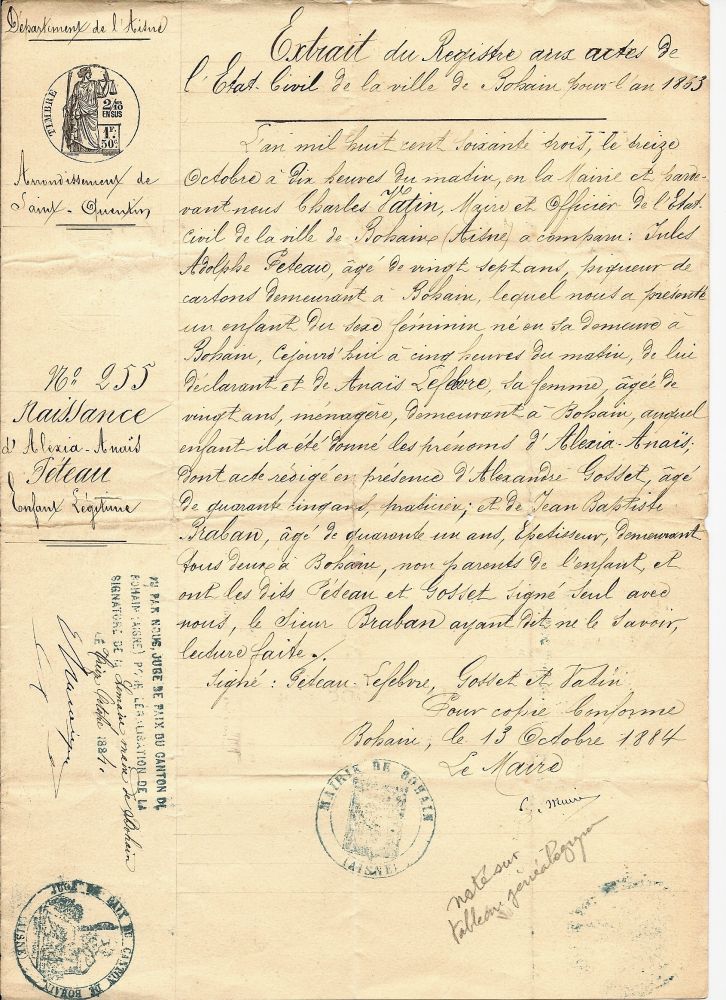 Département de l'Aisne
TIMBRE
2/10
EN SUS
1F.
50c
Arrondissement de
Saint-Quentin
No 255
Naissance
d'Alexia-Anaïs
Péteau
Enfant Légitime
Extrait du Registre aux actes de
l'Etat-Civil de la ville de Bohain pour l'an 1863
L'an mil huit cent soixante trois, le treize
Octobre à dix heures du matin, en la Mairie et parde-
vant nous Charles Vatin, Maire et Officier de l'Etat-
Civil de la ville de Bohain (Aisne) a comparu: Jules
Adolphe Péteau, âgé de vingt sept ans, piqueur de
cartons demeurant à Bohain, lequel nous a présenté
un enfant du sexe féminin né en sa demeure à
Bohain, cejourd'hui à cinq heures du matin, de lui
déclarant et de Anaïs Lefebvre, sa femme, âgée de
vingt ans, ménagère, demeurant à Bohain, auquel
enfant il a été donné les prénoms d'Alexia-Anaïs;
dont acte rédigé en présence d'Alexandre Gosset, âgé
de quarante cinq ans, praticien; et de Jean Baptiste
Braban, âgé de quarante un ans, Epetisseur, demeurant
tous deux à Bohain, non parents de l'enfant, et
ont les dits Péteau et Gosset signé seul avec
nous, le sieur Braban ayant dit ne le savoir,
lecture faite.
Signé: Péteau-Lefebvre, Gosset et Vatin
Pour copie Conforme
Bohain, le 13 Octobre 1884
Le Maire
VU PAR NOUS, JUGE DE PAIX DU CANTON DE
BOHAIN (AISNE) POUR LÉGALISATION DE LA
SIGNATURE DE maire de Bohain
LE 1884.
MAIRIE DE BOHAIN
(AISNE)
noté sur
tableau généalogique
JUGE DE PAIX DU CANTON DE BOHAIN (AISNE)